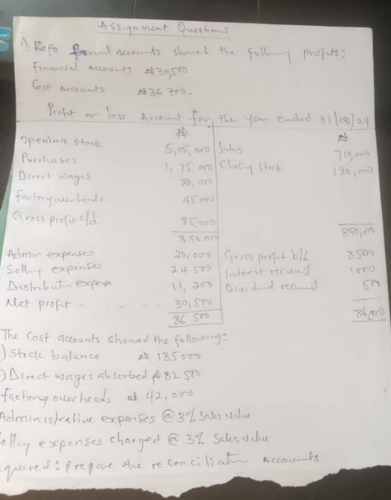 Assignment Questions
1) Kofo final accounts showed the following profits:
Financial Accounts ₦30,500
Cost Accounts ₦36 700.
Profit or loss Account for the year ended 31/08/24
₦ ₦
Opening stock 5,05,000 Sales
Purchases 1,75 000 Closing stock 180,000
Direct wages 80,000
Factory overheads 45000
Gross profit c/d 85,000
850 000 850,000
Admin expenses 20,000 Gross profit b/f
Selling expenses 24 500 Interest received 1000
Distribution expen 11,200 Dividend received 500
Net profit 30,500
86 500
The Cost accounts showed the following:
) Stock balance ₦ 185000
) Direct wages absorbed ₦82 500
Factory overheads at 42,000
Administrative expenses @ 3% Sales value
elling expenses charged @ 3% Sales value
equired: Prepare the reconciliation Accounts